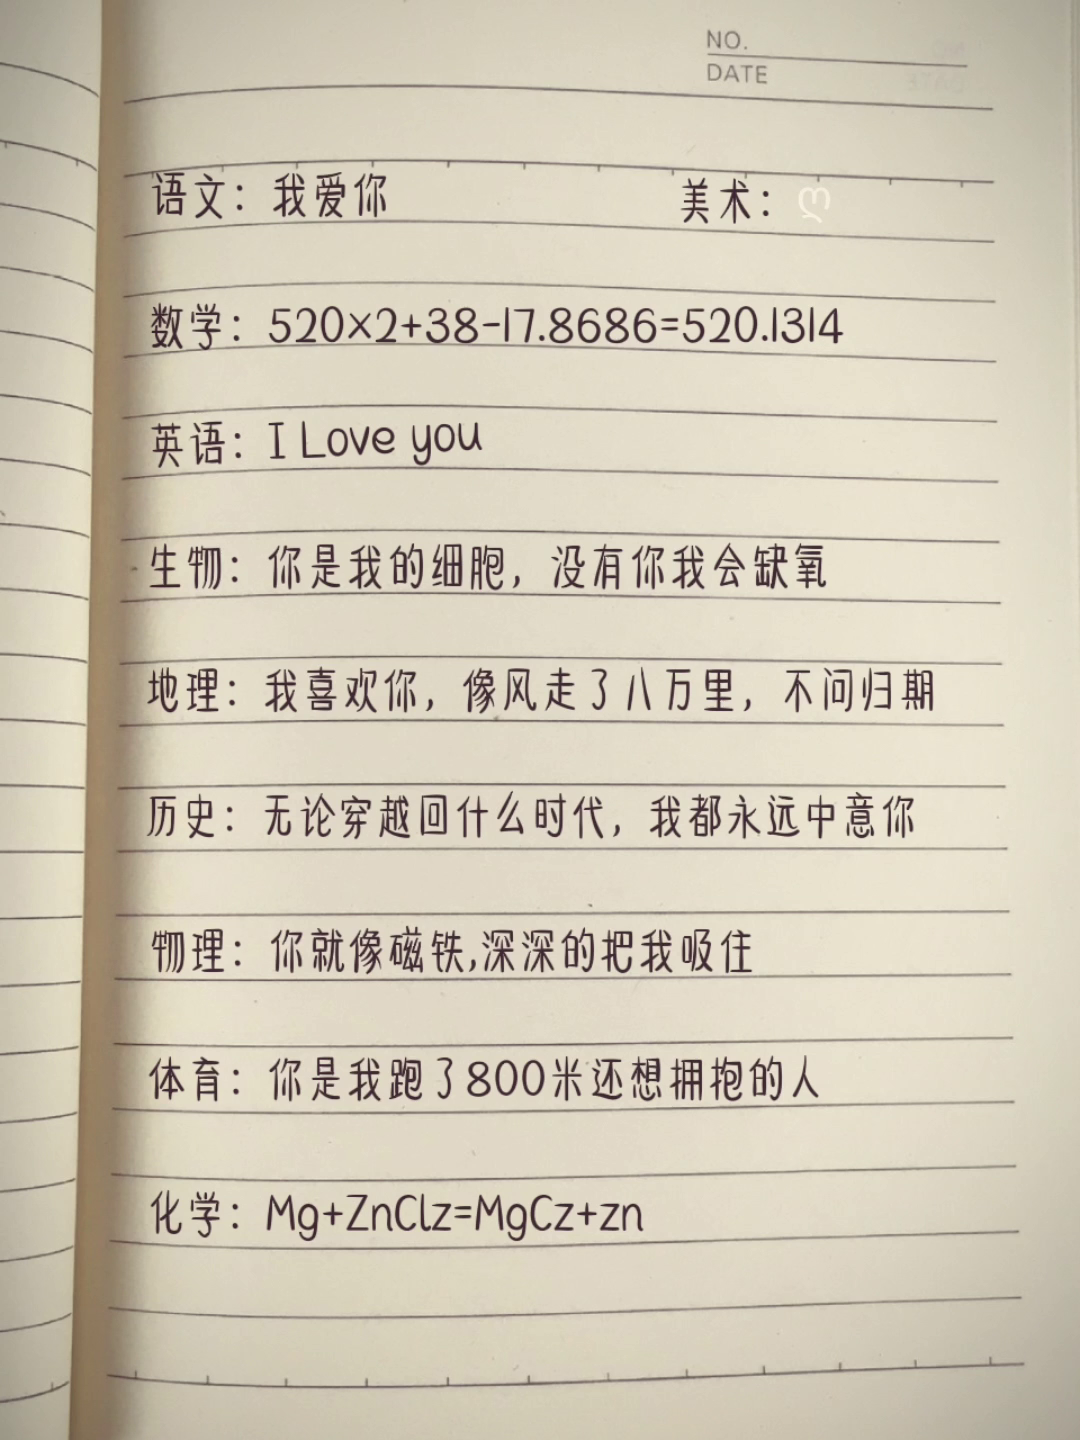 NO.
DATE
语文：我爱你 美术：ෆ
数学：520×2+38-17.8686=520.1314
英语：I Love you
生物：你是我的细胞，没有你我会缺氧
地理：我喜欢你，像风走了八万里，不问归期
历史：无论穿越回什么时代，我都永远中意你
物理：你就像磁铁,深深的把我吸住
体育：你是我跑了800米还想拥抱的人
化学：Mg+ZnClz=MgCz+zn